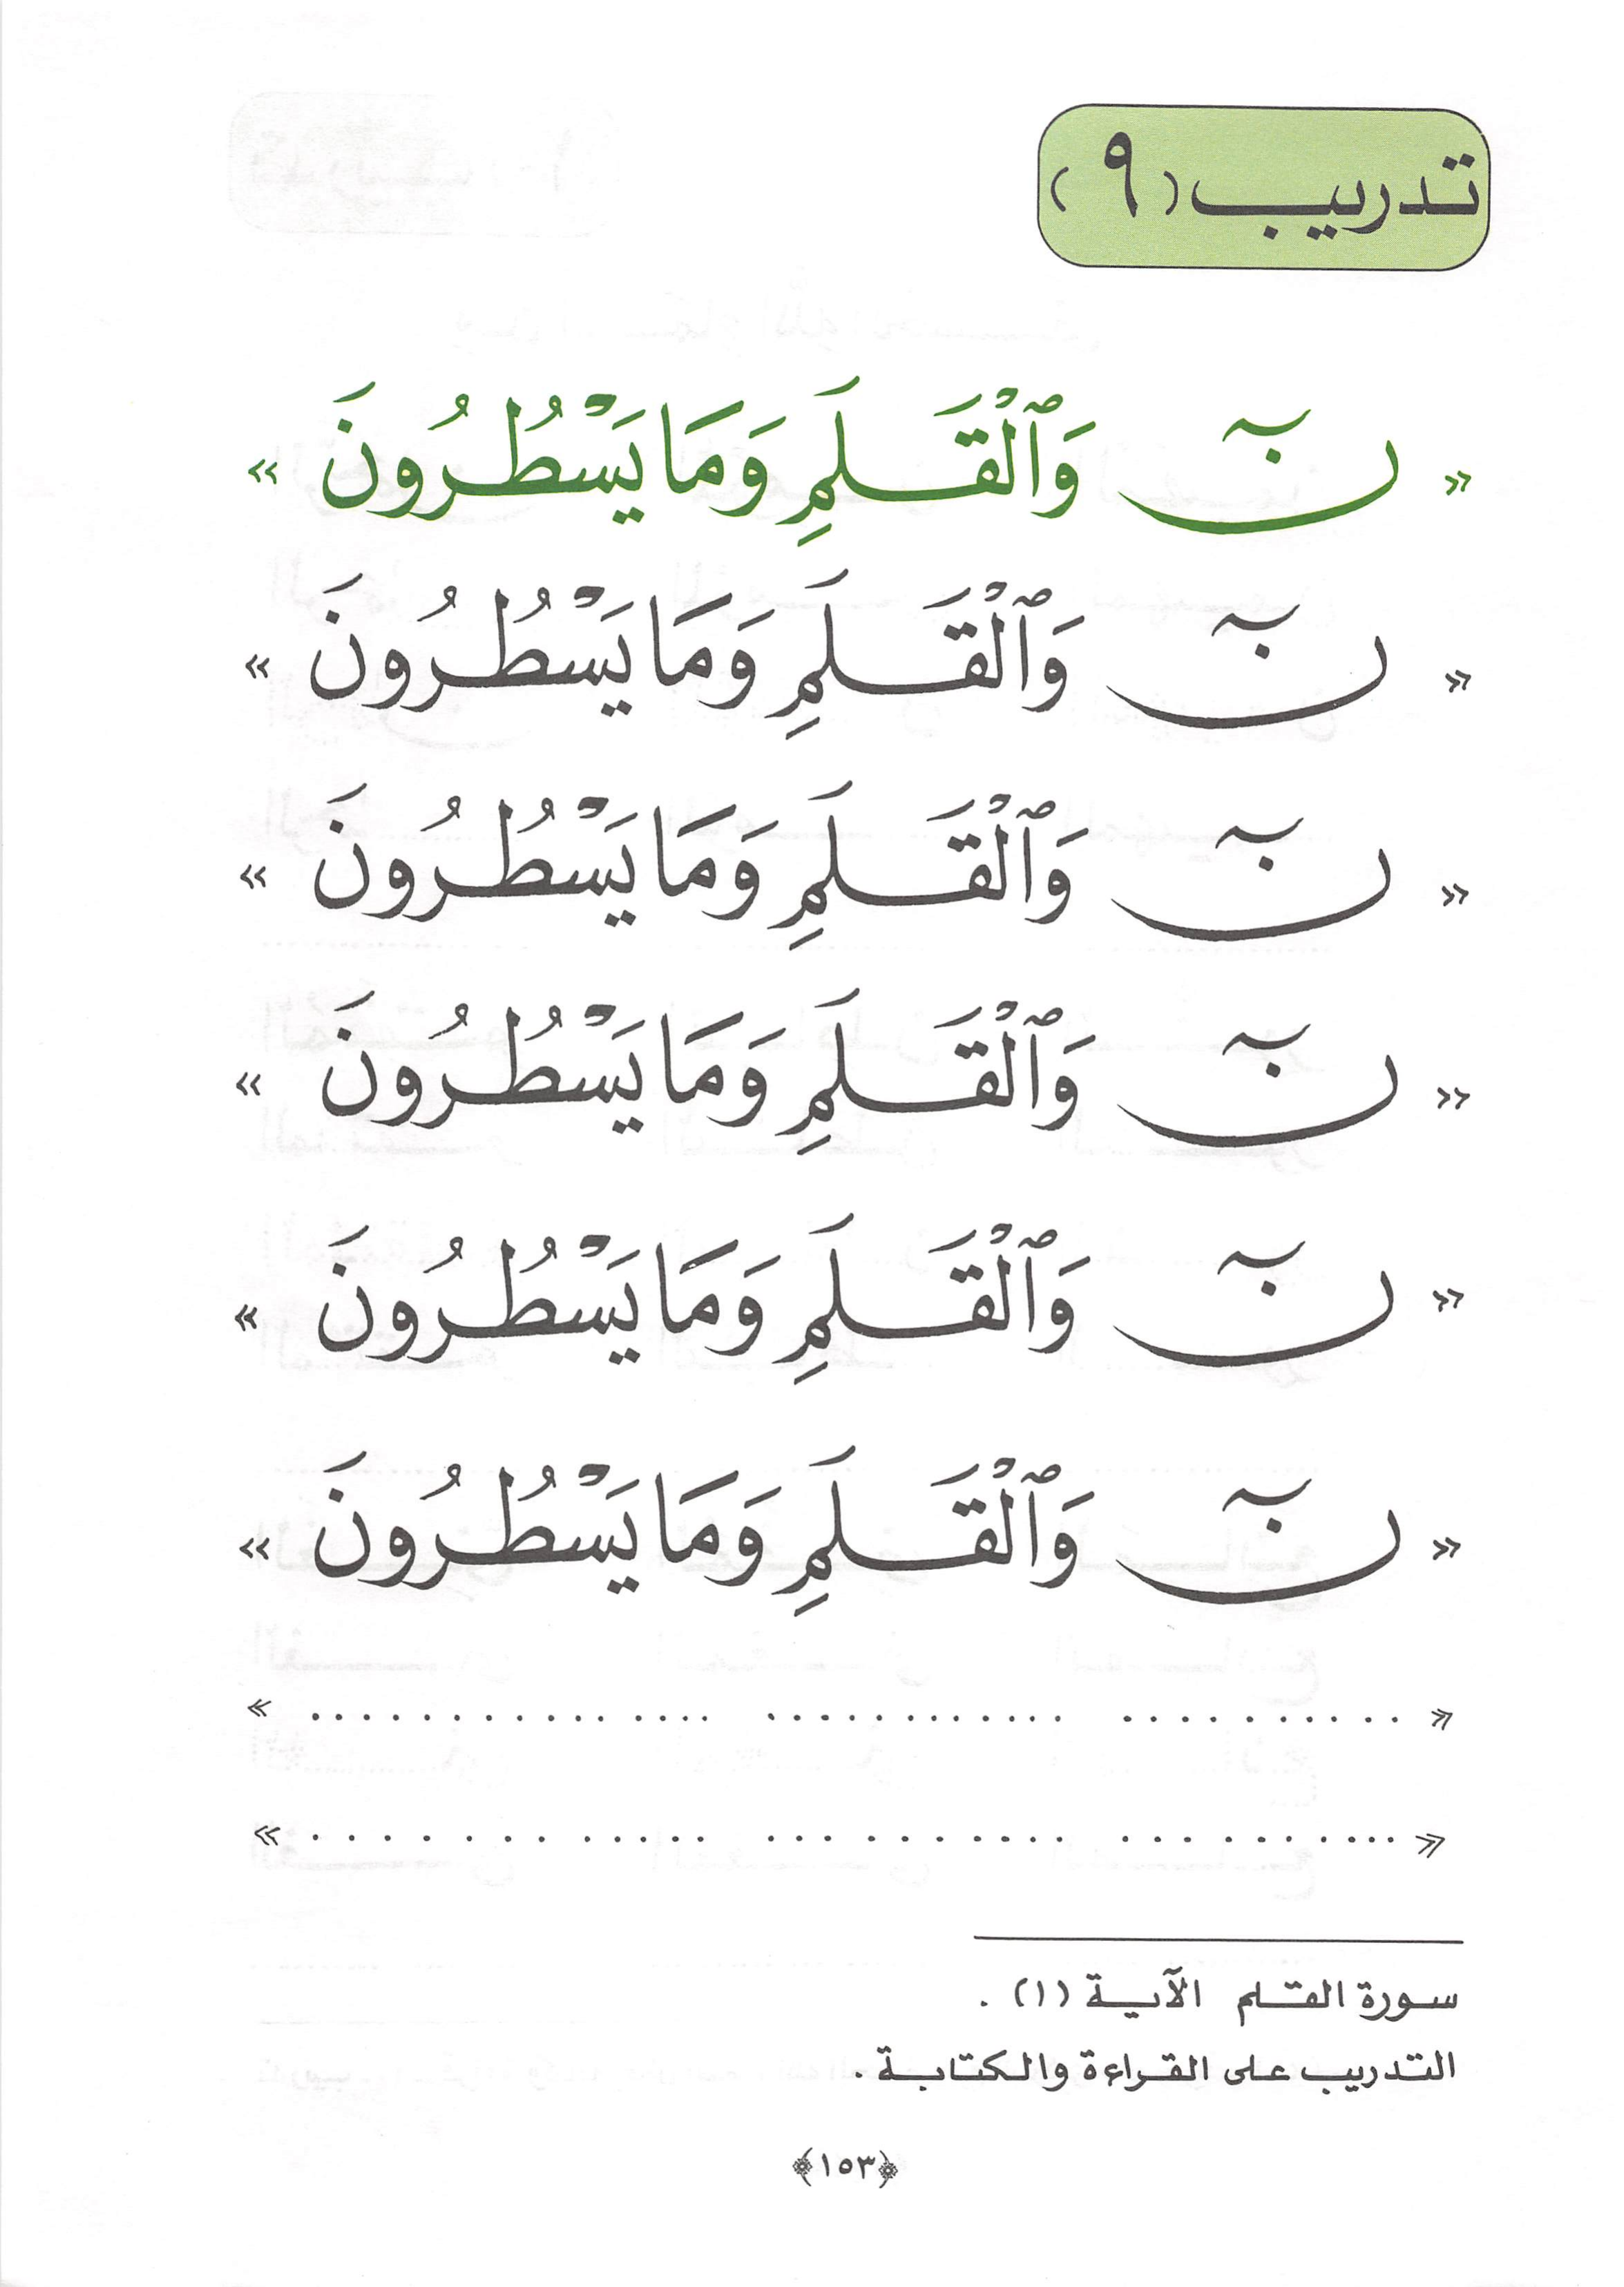 تدريب (٩)
« نٓ وَٱلْقَلَمِ وَمَا يَسْطُرُونَ »
« نٓ وَٱلْقَلَمِ وَمَا يَسْطُرُونَ »
« نٓ وَٱلْقَلَمِ وَمَا يَسْطُرُونَ »
« نٓ وَٱلْقَلَمِ وَمَا يَسْطُرُونَ »
« نٓ وَٱلْقَلَمِ وَمَا يَسْطُرُونَ »
« نٓ وَٱلْقَلَمِ وَمَا يَسْطُرُونَ »
« .......... ............ ................ »
« .......... ............ ............... »
سورة القلم الآية (١) .
التدريب على القراءة والكتابة .
﴿١٥٣﴾